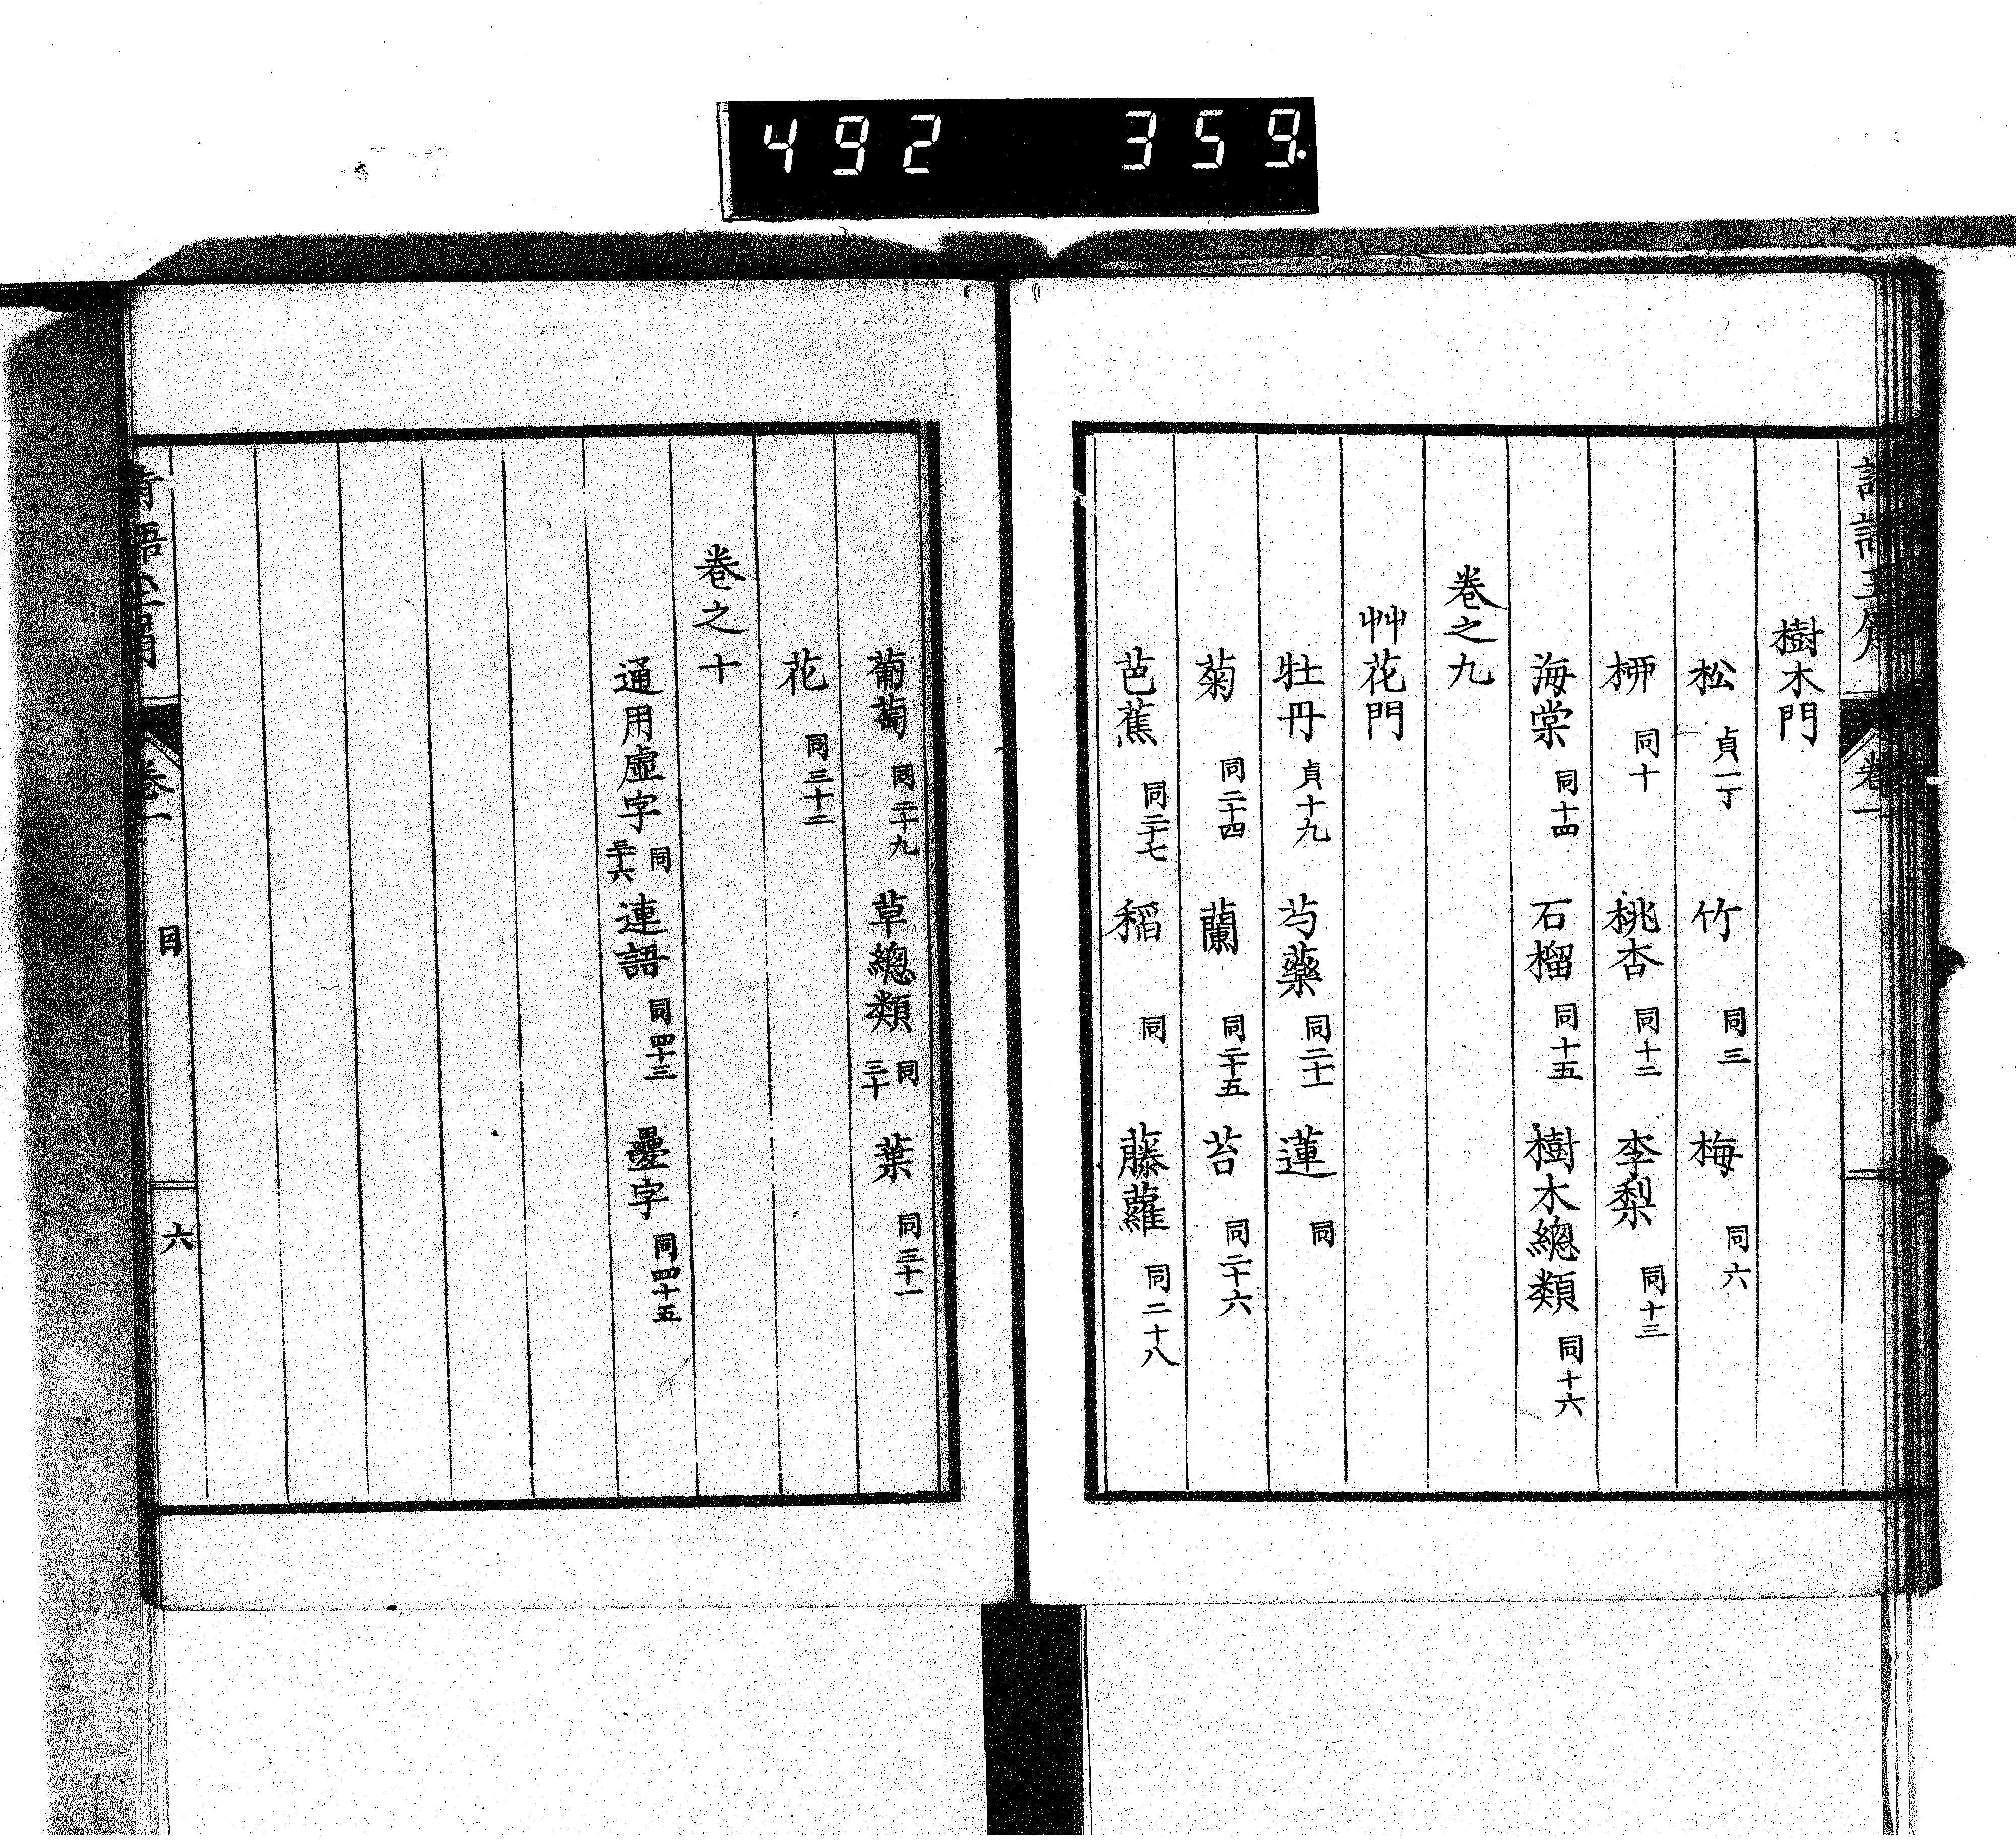 492 359.
樹木門
松 貞一丁 竹 同三 梅 同六
栁 同十 桃杏 同十二 李梨 同十三
海棠 同十四 石榴 同十五 樹木總類 同十六
卷之九
艸花門
牡丹 貞十九 芍藥 同二十一 蓮 同
菊 同二十四 蘭 同二十五 苔 同二十六
芭蕉 同二十七 稻 同 藤蘿 同二十八
葡萄 同二十九 草總類 同三十 葉 同三十一
花 同三十二
卷之十
通用虛字 同三十六 連語 同四十三 疊字 同四十五
卷一 目 六